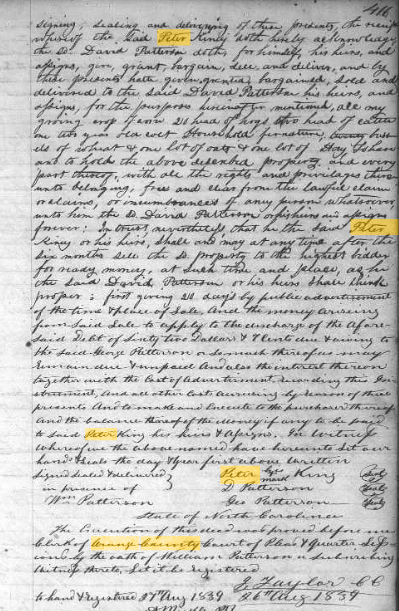 416
signing, sealing and delivering of these presents, the receipt
whereof the said Peter King doth hereby acknowledge
the Sd. David Patterson doth, for himself, his heirs, and
assigns, give, grant, bargain, sell and deliver, and by
these presents hath given, granted, bargained, sold and
delivered to the said David Patterson his heirs, and
assigns, for the purposes hereinafter mentioned, all my
growing crop of corn 20 head of hogs two head of cattle
one two year old colt Household furniture, bush
els of wheat & one lot of oats & one lot of Hay
and to hold the above described property and every
part thereof, with all the rights and privilages there
unto belonging, free and clear from the lawful claim
or claims, or incumbrances of any person whatsoever
unto him the Sd David Patterson or his heirs and assigns
forever: In trust, nevertheless that he the said Peter
King or his heirs, shall and may at any time after the
six months sell the Sd. property to the highest bidder
for ready money, at such time and place, as he
the said David Patterson or his heirs shall think
proper; first giving 20 days by public advertisement
of the time & place of Sale, And the money arising
from said Sale to apply to the discharge of the afore-
said Debt of Sixty two Dollars & 7 Cents due & owing to
the said George Patterson or so much thereof as may
remain due & unpaid And also the interest thereon
together with the Cost of Advertisement recording this In-
strument, And all other Cost accruing by reason of these
presents And to make and Execute to the purchaser thereof
And the balance thereof the Money if any to be paid
to said Peter King his heirs & Assigns. In Witness
whereof we the above named have hereunto Set our
hand & Seals the day & year first above written
Signed Sealed & delivered } Peter his mark King Seal
in presence of D Patterson Seal
Wm Patterson Geo Patterson Seal
State of North Carolina
The Execution of this deed was proved before me
Clerk of Orange County Court of Pleas & Quarter Sess
ions by the oath of William Patterson a subscribing
Witness thereto, Let it be registered
J Taylor CC
to hand & registered 27th Aug 1839 26th Aug 1839